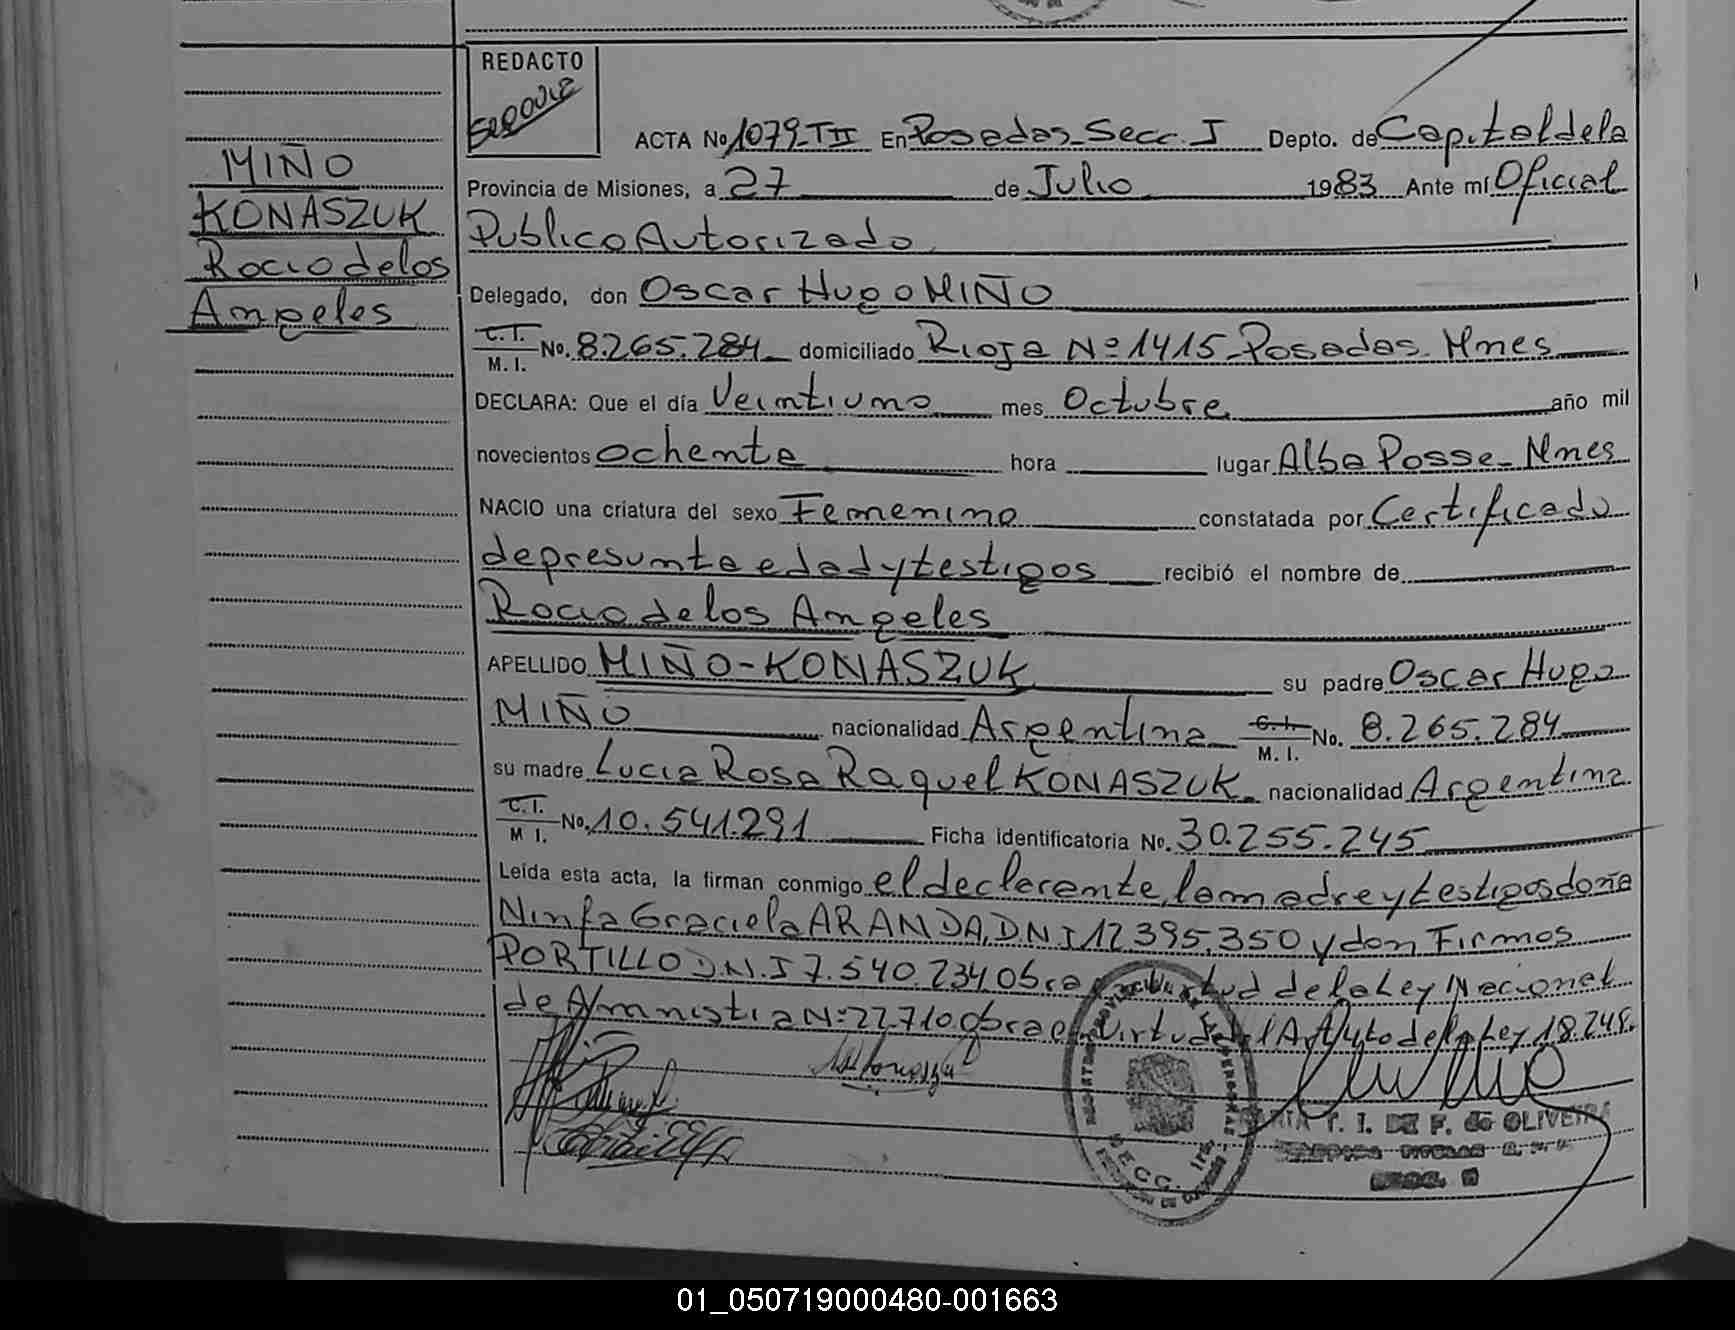 REDACTO
ACTA No 1079-TII En Posadas-Secc. I Depto. de Capital de la
MIÑO
Provincia de Misiones, a 27 de Julio 1983 Ante mí Oficial
KONASZUK
Publico Autorizado
Rocio de los
Angeles
Delegado, don Oscar Hugo MIÑO
C.I.
M. I. No. 8.265.284 domiciliado Rioja Nº 1415-Posadas-Mnes
DECLARA: Que el día Veintiuno mes Octubre año mil
novecientos ochenta hora lugar Alba Posse-Mnes
NACIO una criatura del sexo Femenino constatada por Certificado
de presunta edad y testigos recibió el nombre de
Rocio de los Angeles
APELLIDO MIÑO-KONASZUK su padre Oscar Hugo
MIÑO nacionalidad Argentina C.I. M. I. No. 8.265.284
su madre Lucia Rosa Raquel KONASZUK nacionalidad Argentina
C.I.
M I. No. 10.541.291 Ficha identificatoria No. 30.255.245
Leída esta acta, la firman conmigo el declarante, la madre y testigos doña
Ninfa Graciela ARANDA, D.N.I 12.395.350 y don Firmos
PORTILLO D.N.I 7.540.234. Obra en virtud de la Ley Nacional
de Amnistia Nº 22.710. Obra en virtud del Art. de la Ley 18.248.
T. I. DE F. de OLIVEIRA
SECC.
01_050719000480-001663